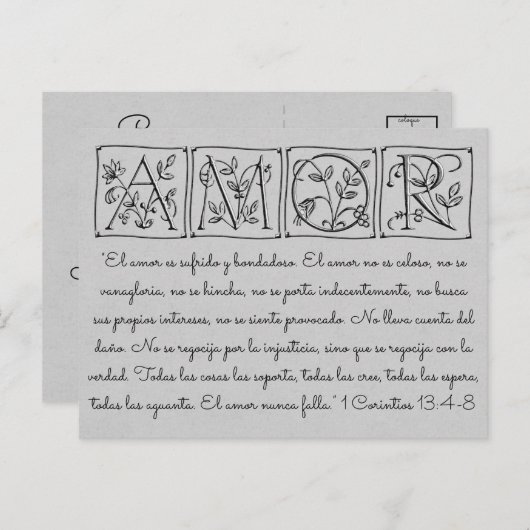 coloque
AMOR
"El amor es sufrido y bondadoso. El amor no es celoso, no se
vanagloria, no se hincha, no se porta indecentemente, no busca
sus propios intereses, no se siente provocado. No lleva cuenta del
daño. No se regocija por la injusticia, sino que se regocija con la
verdad. Todas las cosas las soporta, todas las cree, todas las espera,
todas las aguanta. El amor nunca falla." 1 Corintios 13:4-8